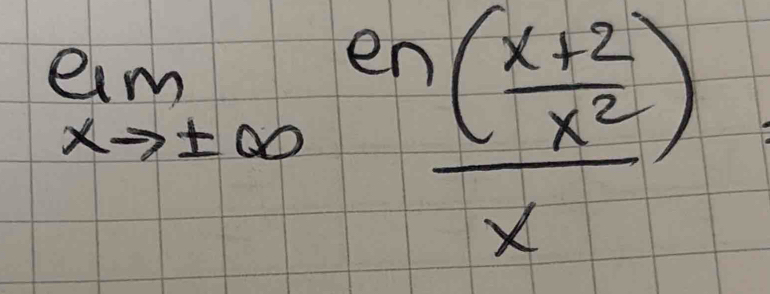 lim x→±∞ ln((x+2)/x²)/x =